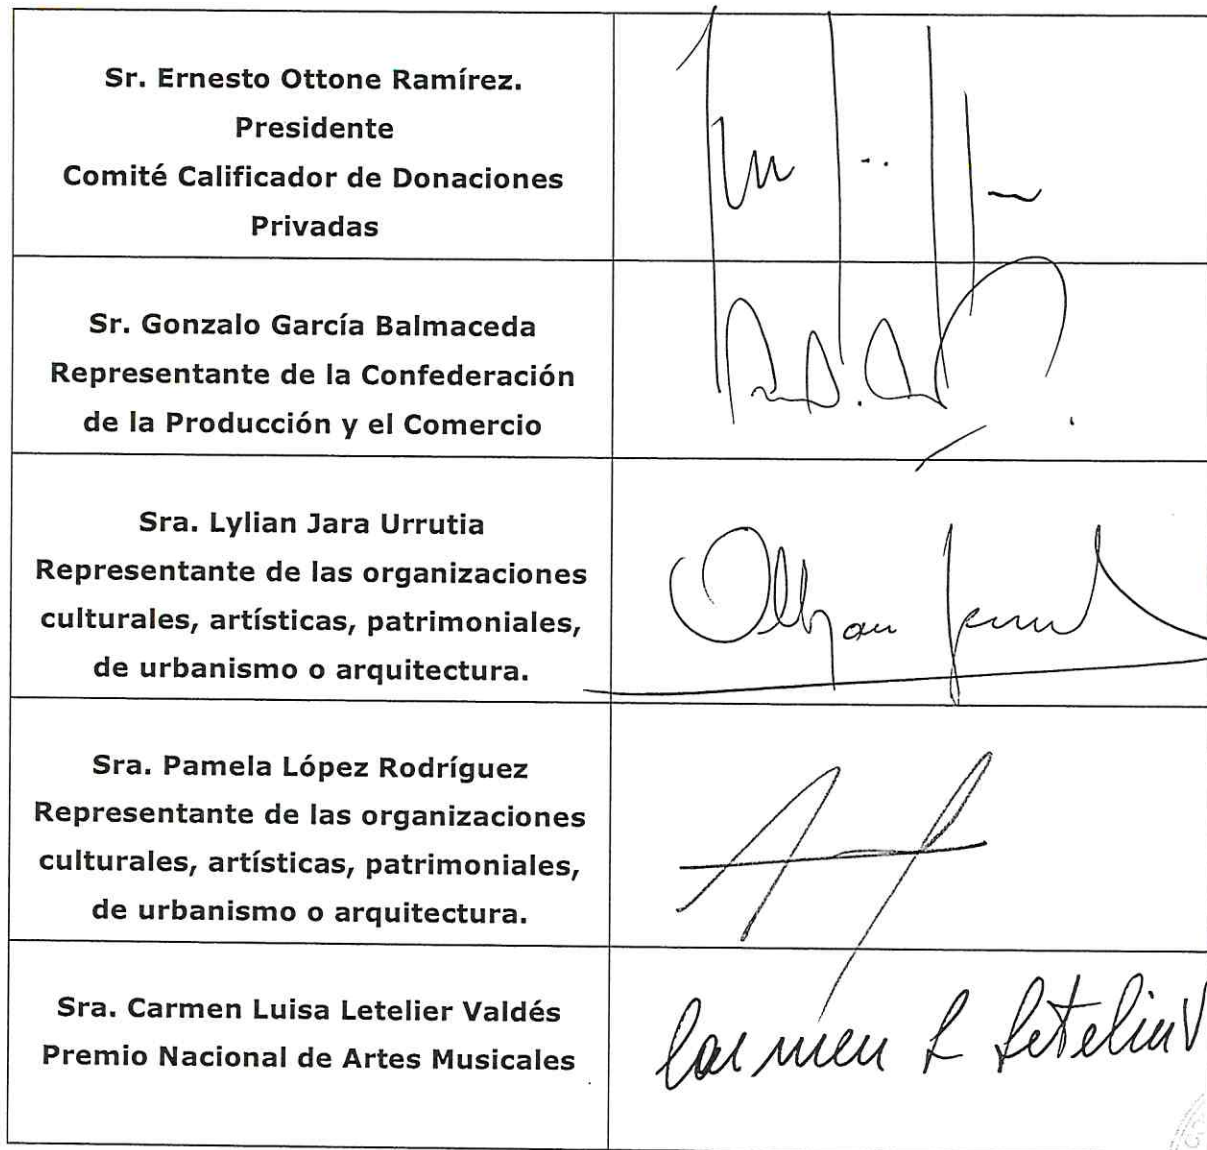 Sr. Ernesto Ottone Ramírez.
Presidente
Comité Calificador de Donaciones
Privadas
Sr. Gonzalo García Balmaceda
Representante de la Confederación
de la Producción y el Comercio
Sra. Lylian Jara Urrutia
Representante de las organizaciones
culturales, artísticas, patrimoniales,
de urbanismo o arquitectura.
Sra. Pamela López Rodríguez
Representante de las organizaciones
culturales, artísticas, patrimoniales,
de urbanismo o arquitectura.
Sra. Carmen Luisa Letelier Valdés
Premio Nacional de Artes Musicales
Carmen L Letelier V